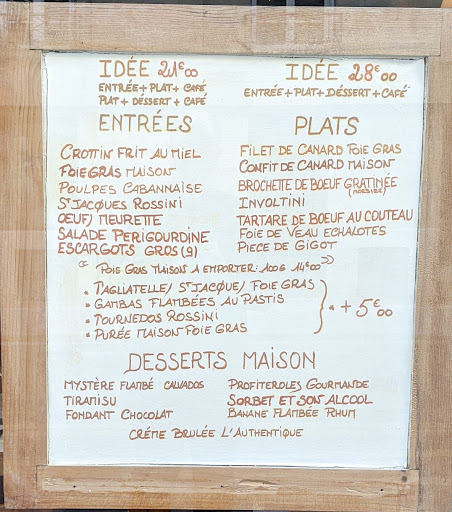 IDÉE 21€00
ENTRÉE + PLAT + CAFÉ
PLAT + DÉSSERT + CAFÉ
IDÉE 28€00
ENTRÉE + PLAT + DÉSSERT + CAFÉ
ENTRÉES
CROTTIN FRIT AU MIEL
FOIE GRAS MAISON
POULPES CABANNAISE
ST JACQUES ROSSINI
OEUF/ MEURETTE
SALADE PÉRIGOURDINE
ESCARGOTS GROS (9)
PLATS
FILET DE CANARD FOIE GRAS
CONFIT DE CANARD MAISON
BROCHETTE DE BOEUF GRATINÉE
INVOLTINI
TARTARE DE BOEUF AU COUTEAU
FOIE DE VEAU ECHALOTES
PIECE DE GIGOT
« FOIE GRAS MAISON A EMPORTER: 100G 14€00 »
• TAGLIATELLE/ ST JACQUE/ FOIE GRAS
• GAMBAS FLAMBÉES AU PASTIS
• TOURNEDOS ROSSINI
• PURÉE MAISON FOIE GRAS
} • + 5€00
DESSERTS MAISON
MYSTÈRE FLAMBÉ CALVADOS
TIRAMISU
FONDANT CHOCOLAT
PROFITEROLES GOURMANDE
SORBET ET SON ALCOOL
BANANE FLAMBÉE RHUM
CRÉME BRULÉE L'AUTHENTIQUE